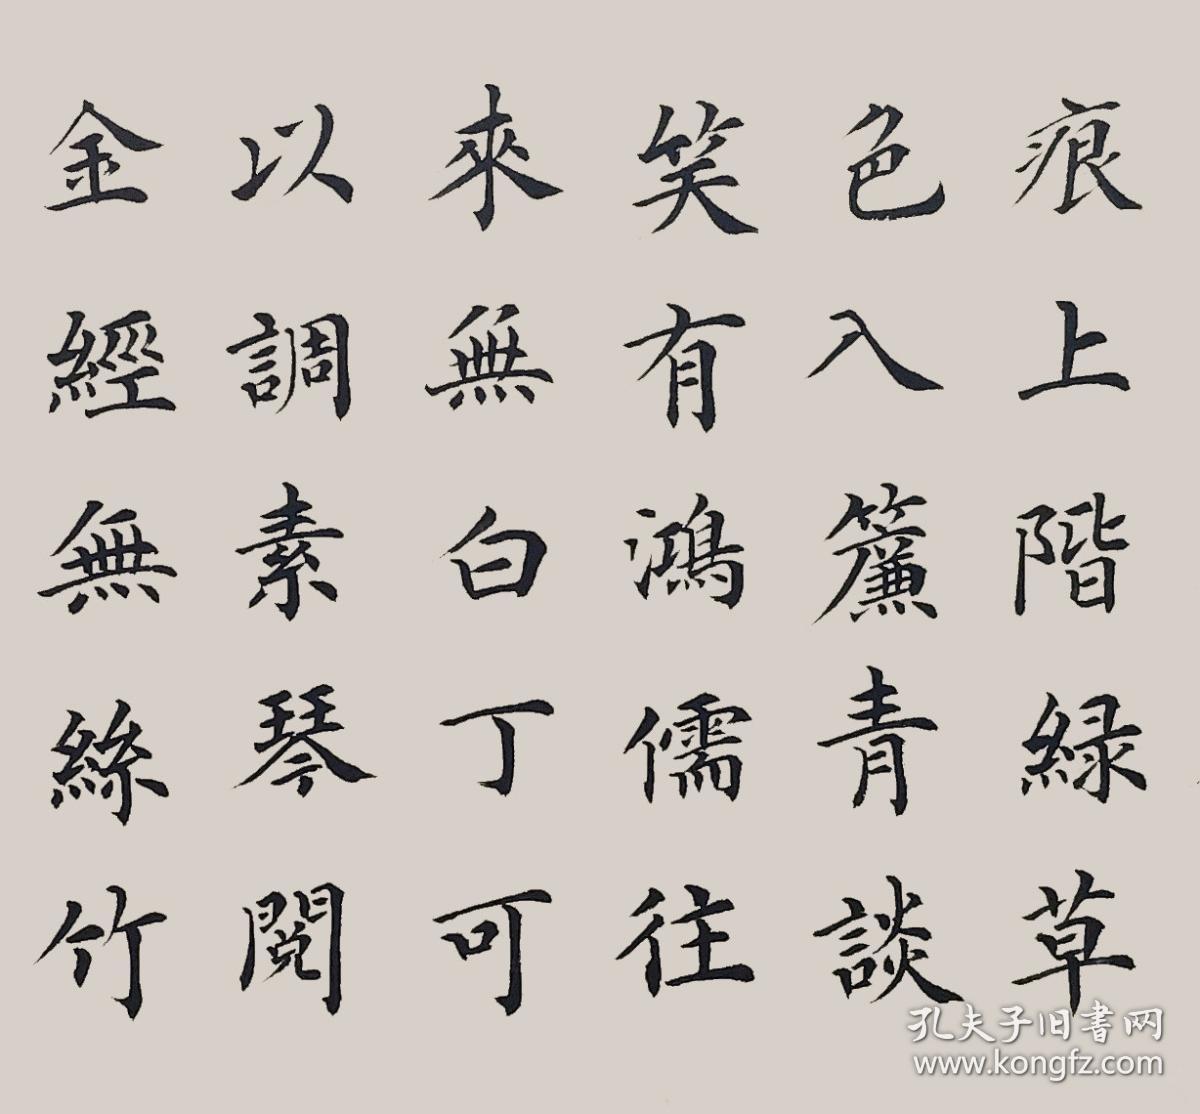 痕上階緑草
色入簾青談
笑有鴻儒往
來無白丁可
以調素琴閱
金經無絲竹
孔夫子旧書网
www.kongfz.com